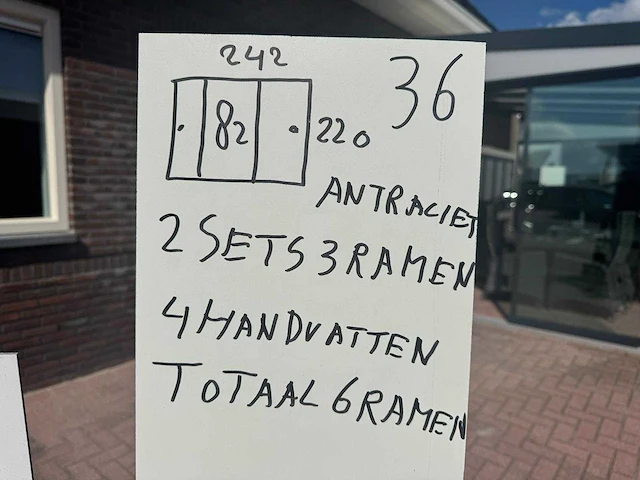 242
36
82
220
ANTRACIET
2 SETS 3 RAMEN
4 HANDVATTEN
TOTAAL 6 RAMEN